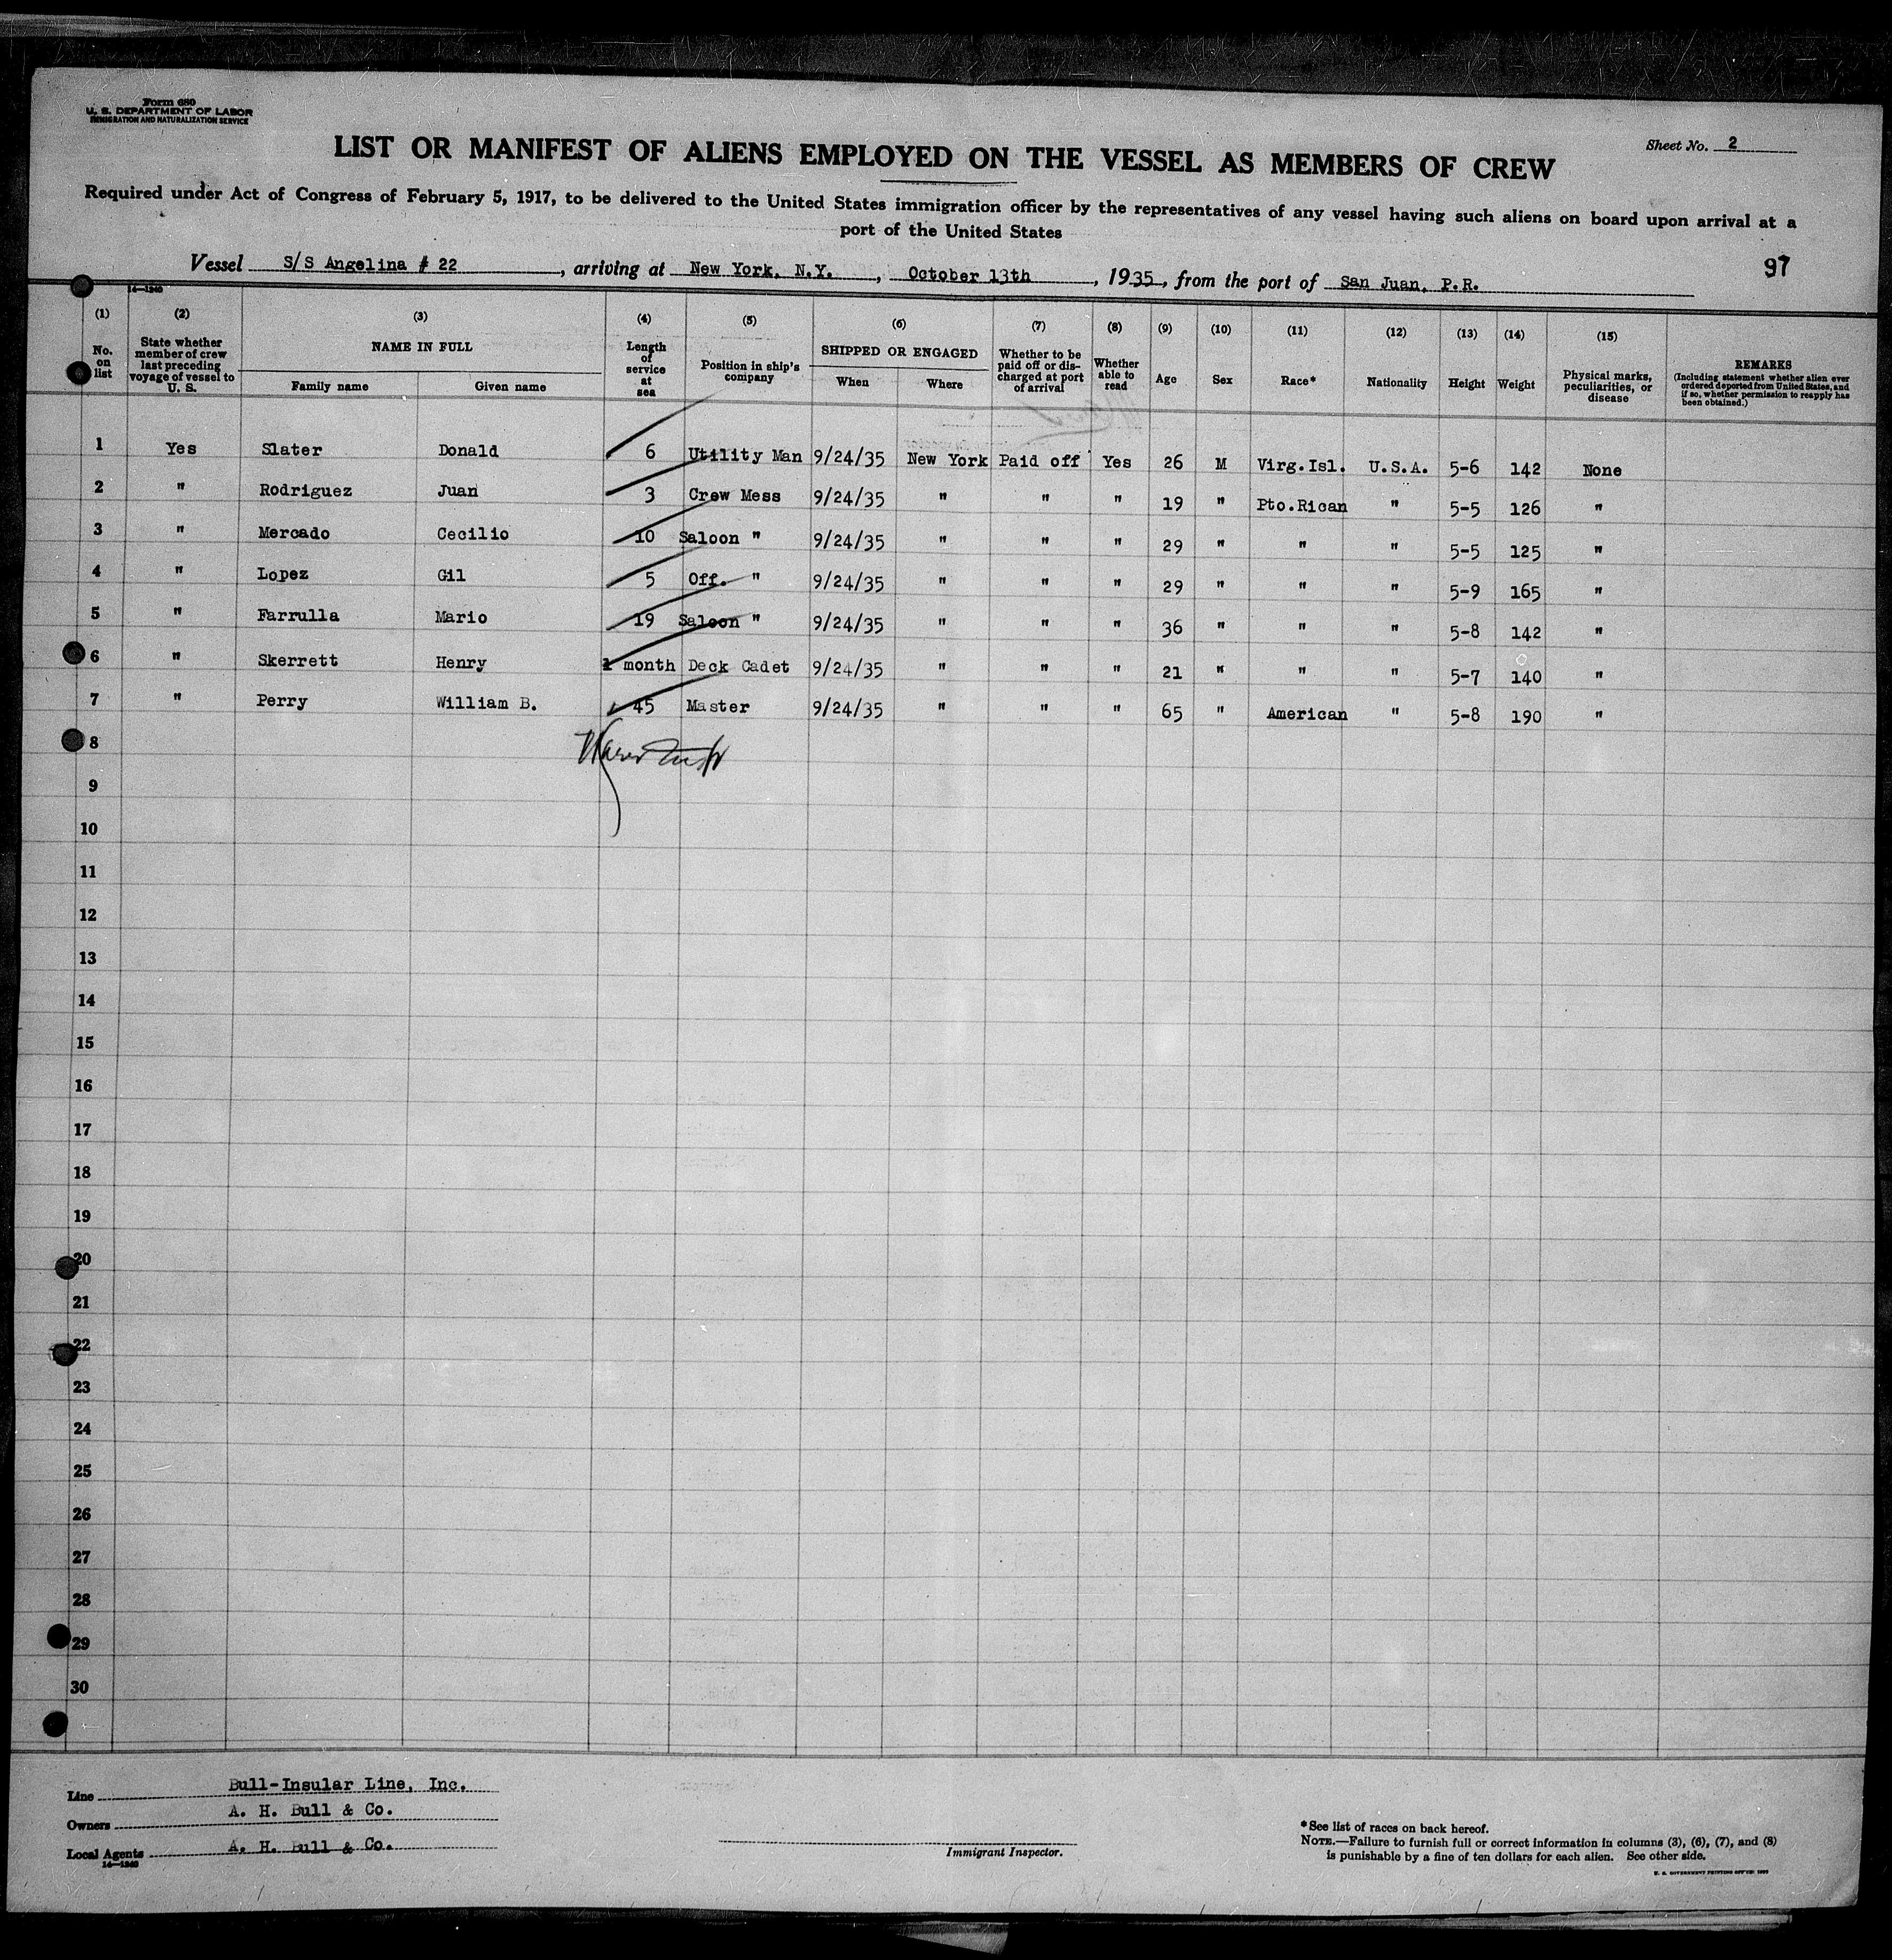 Form 680
U. S. DEPARTMENT OF LABOR
IMMIGRATION AND NATURALIZATION SERVICE
Sheet No. 2
LIST OR MANIFEST OF ALIENS EMPLOYED ON THE VESSEL AS MEMBERS OF CREW
Required under Act of Congress of February 5, 1917, to be delivered to the United States immigration officer by the representatives of any vessel having such aliens on board upon arrival at a
port of the United States
Vessel S/S Angelina # 22, arriving at New York, N.Y., October 13th, 1935, from the port of San Juan, P.R.
97
14—1240
(1) (2) (3) (4) (5) (6) (7) (8) (9) (10) (11) (12) (13) (14) (15)
No. on list
State whether member of crew last preceding voyage of vessel to U. S.
NAME IN FULL
Family name Given name
Length of service at sea
Position in ship's company
SHIPPED OR ENGAGED
When Where
Whether to be paid off or discharged at port of arrival
Whether able to read
Age Sex Race* Nationality Height Weight
Physical marks, peculiarities, or disease
REMARKS
(Including statement whether alien ever ordered deported from United States, and if so, whether permission to reapply has been obtained.)
1 Yes Slater Donald 6 Utility Man 9/24/35 New York Paid off Yes 26 M Virg.Isl. U.S.A. 5-6 142 None
2 " Rodriguez Juan 3 Crew Mess 9/24/35 " " " 19 " Pto.Rican " 5-5 126 "
3 " Mercado Cecilio 10 Saloon " 9/24/35 " " " 29 " " " 5-5 125 "
4 " Lopez Gil 5 Off. " 9/24/35 " " " 29 " " " 5-9 165 "
5 " Farrulla Mario 19 Saloon " 9/24/35 " " " 36 " " " 5-8 142 "
6 " Skerrett Henry 1 month Deck Cadet 9/24/35 " " " 21 " " " 5-7 140 "
7 " Perry William B. 45 Master 9/24/35 " " " 65 " American " 5-8 190 "
8
9
10
11
12
13
14
15
16
17
18
19
20
21
22
23
24
25
26
27
28
29
30
Line Bull-Insular Line, Inc.
Owners A. H. Bull & Co.
Local Agents A. H. Bull & Co.
14—1240
Immigrant Inspector.
*See list of races on back hereof.
NOTE.—Failure to furnish full or correct information in columns (3), (6), (7), and (8)
is punishable by a fine of ten dollars for each alien. See other side.